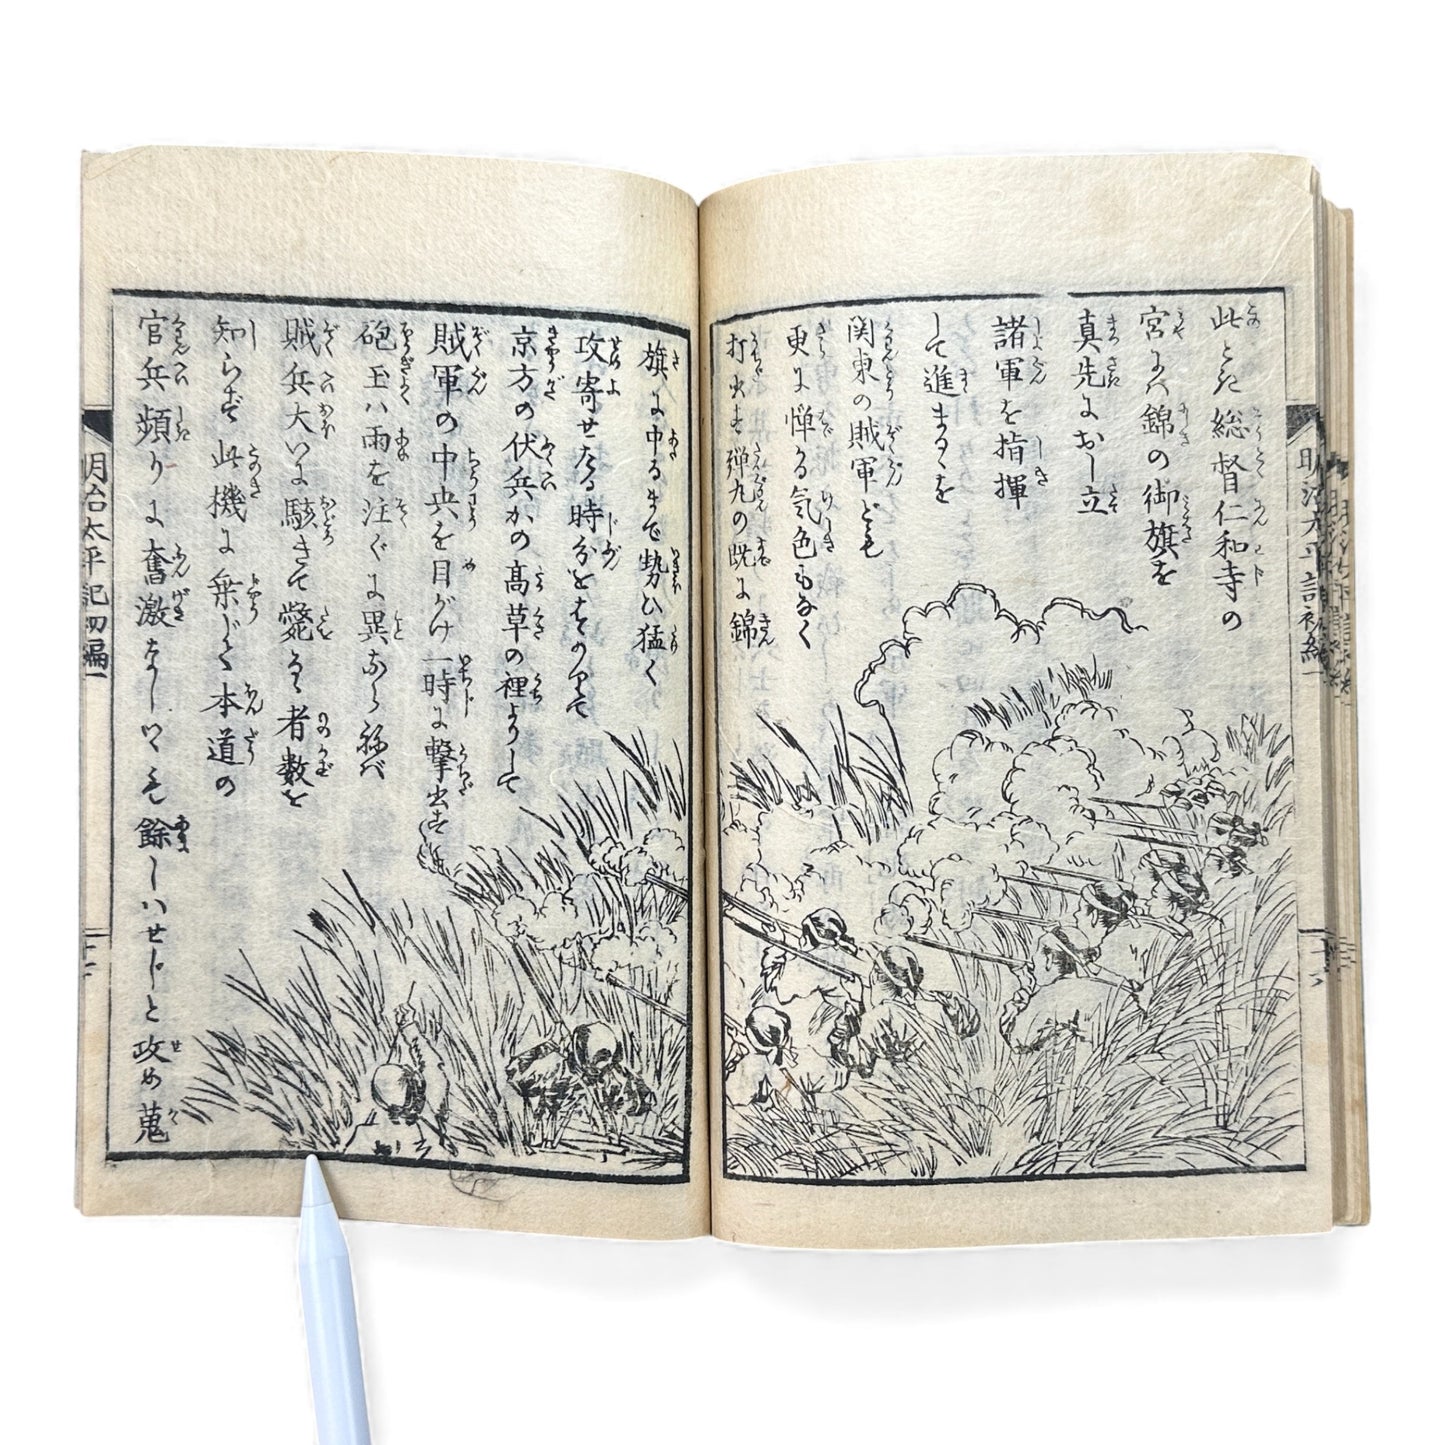 此とき総督仁和寺の
宮にハ錦の御旗を
真先におし立
諸軍を指揮
して進まるゝを
関東の賊軍ども
更に憚る気色もなく
打出す弾丸の既に錦
旗に中るまで勢ひ猛く
攻寄せたる時分をはかりて
京方の伏兵かの高草の裡よりして
賊軍の中央を目がけ一時に撃出す
砲玉ハ雨を注ぐに異ならねバ
賊兵大いに駭きて斃るゝ者数を
知らず此機に乗じて本道の
官兵頻りに奮激なし
餘しハせじと攻め蒐
明治太平記初編一
明治太平記初編一